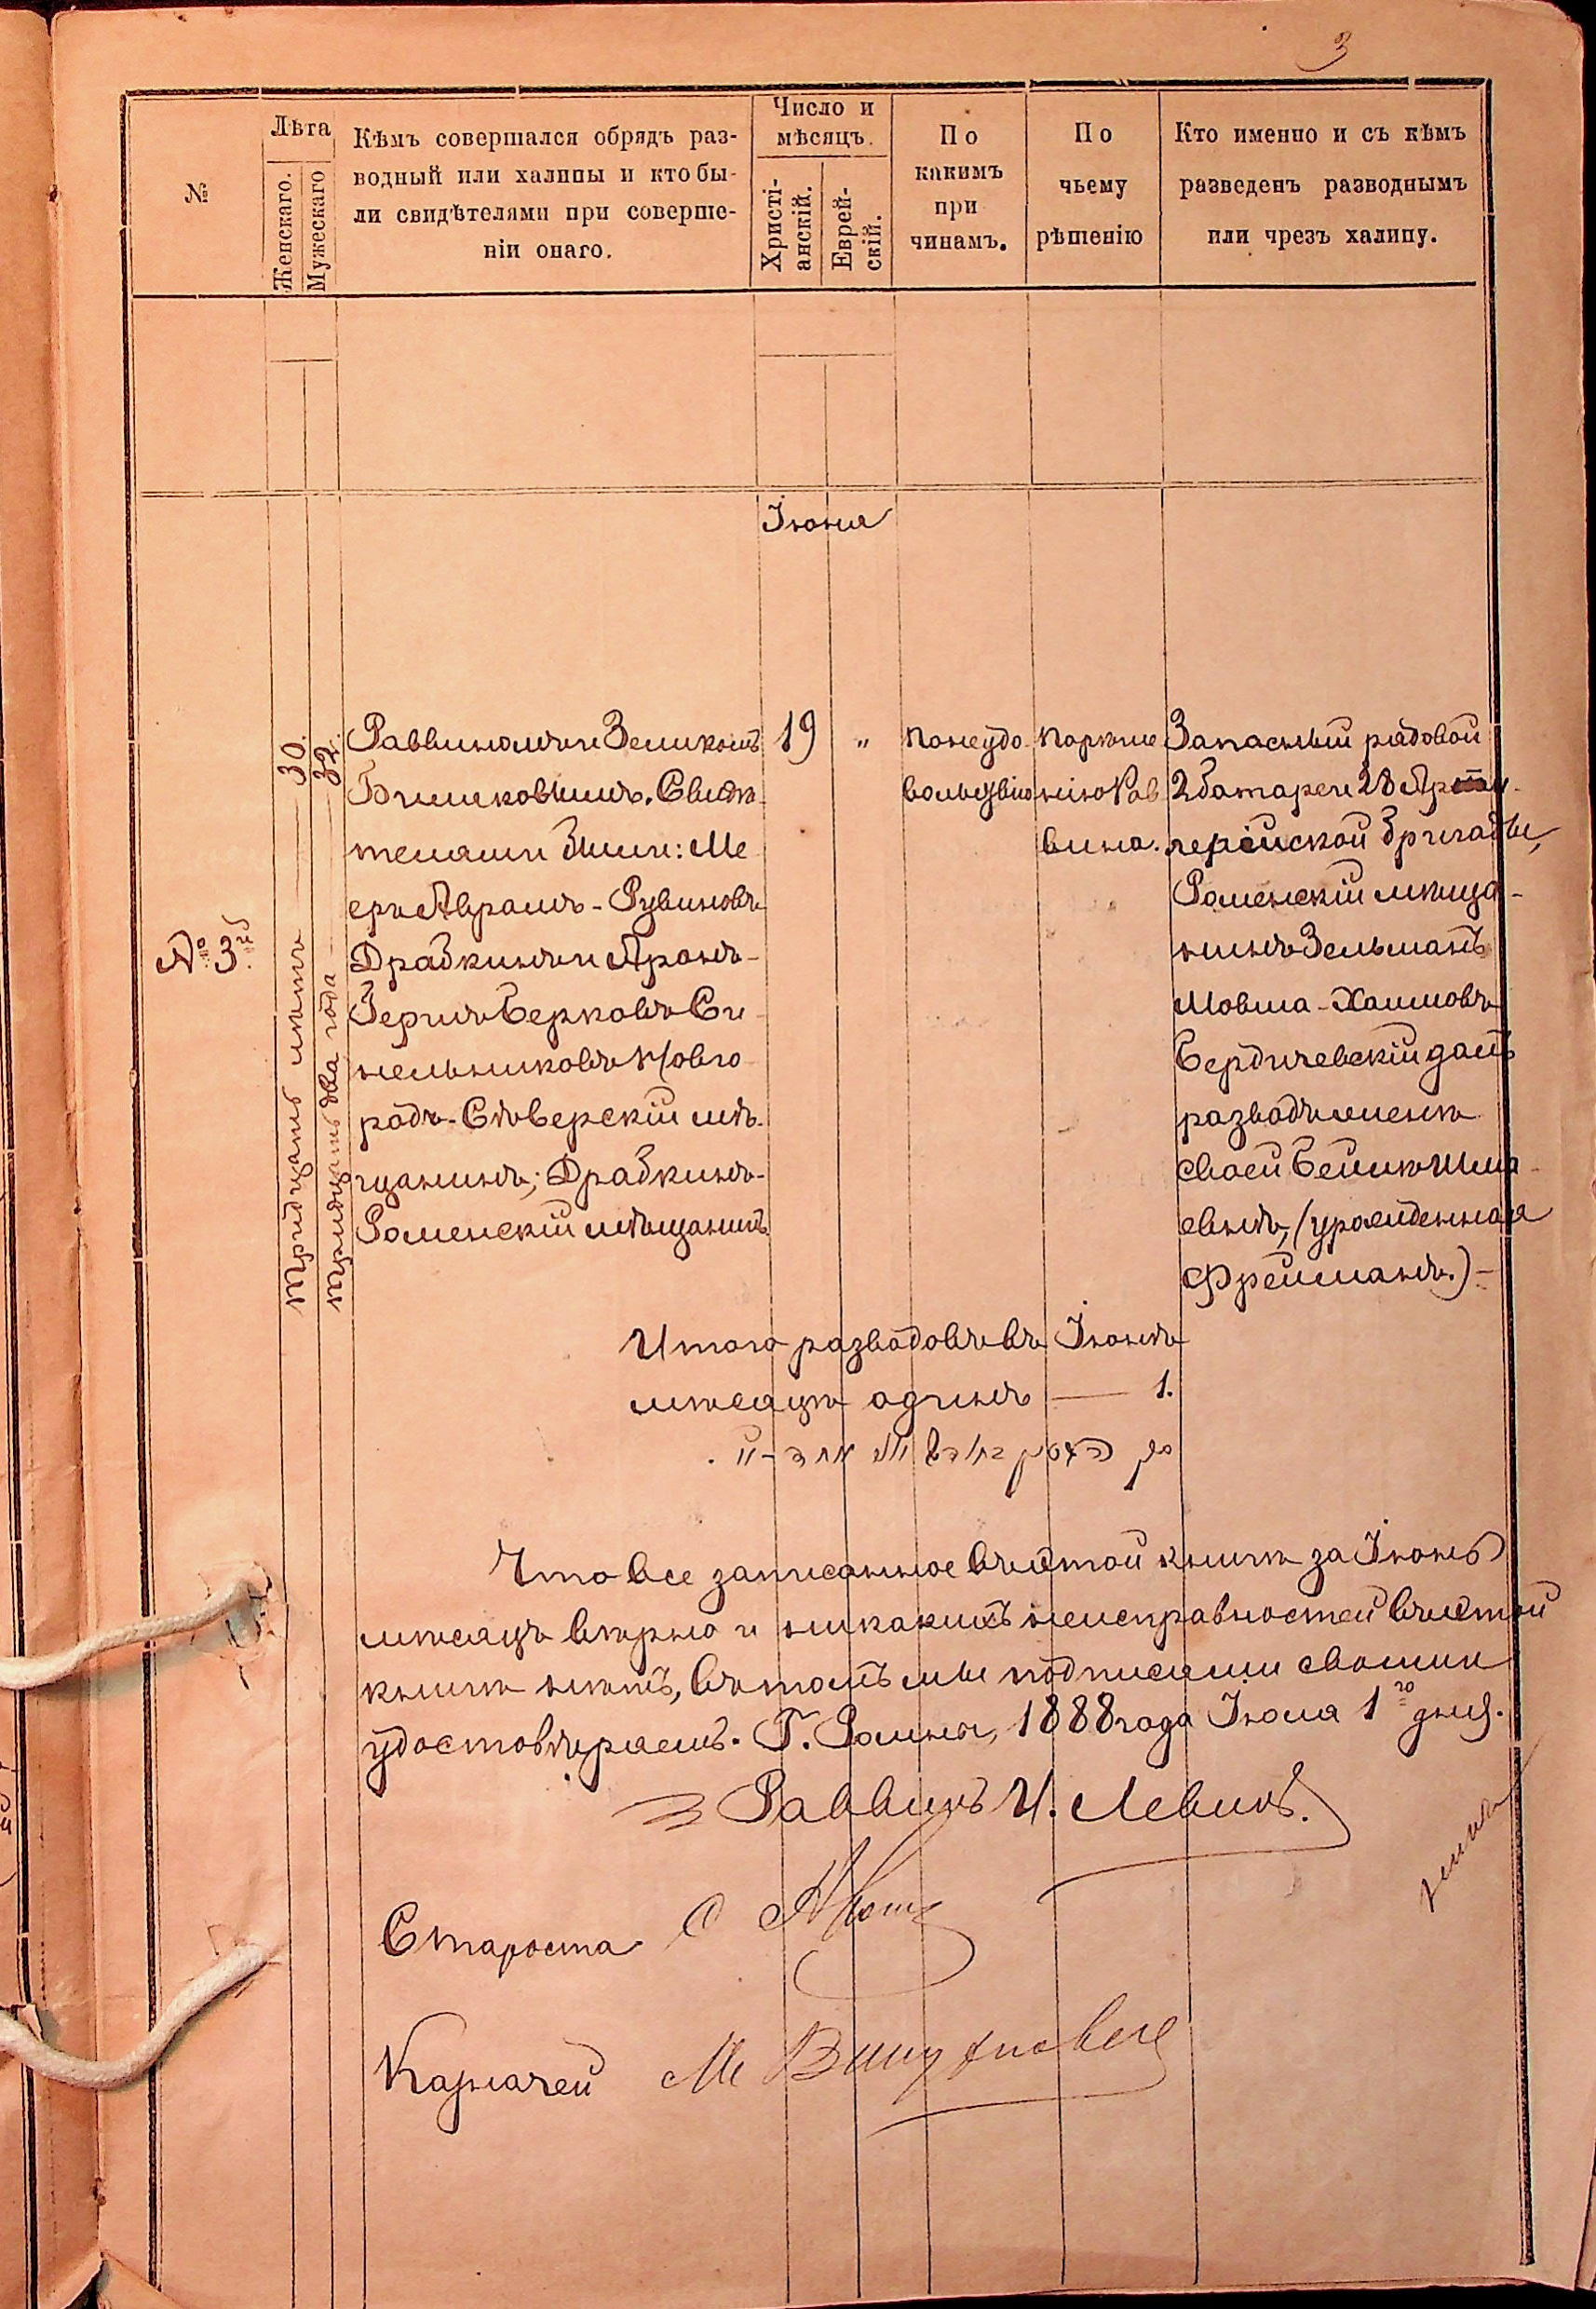 3
№
Лѣта
Женскаго.
Мужескаго
Кѣмъ совершался обрядъ раз-
водный или халицы и кто бы-
ли свидѣтелями при соверше-
ніи онаго.
Число и
мѣсяцъ.
Христі-
анскій.
Еврей-
скій.
По
какимъ
при
чинамъ.
По
чьему
рѣшенію
Кто именно и съ кѣмъ
разведенъ разводнымъ
или чрезъ халицу.
Іюня
№ 3й
Тридцать лѣтъ — 30.
Тридцать два года — 32.
Раввиномъ Земикомъ
Свидѣ-
телями были: Ме
еръ Аврамъ-Рувиновъ
Драбкинъ и Аронъ-
Герцъ Берковъ Си
нельниковъ Новго
родъ-Сѣверскій мѣ-
щанинъ; Драбкинъ-
Роменскій мѣщанинъ
19
"
Понеудо
вольствію
Порѣше
нію Рав
вина.
Запасный рядовой
2 батареи 28 Арти-
лерійской бригады,
Роменскій мѣща-
нинъ Зельманъ
Мовша-Хаимовъ
Бердичевскій далъ
разводъ женѣ
своей Бейлѣ Шма-
евнѣ, (урожденная
Фрейманъ.)-
Итого разводовъ въ Іюнѣ
мѣсяцѣ одинъ — 1.
Что все записанное въ этой книгѣ за Іюнь
мѣсяцъ вѣрно и никакихъ неисправностей въ этой
книгѣ нѣтъ, въ томъ мы подписями своими
удостовѣряемъ. Г. Ромны, 1888 года Іюля 1го дня.
Раввинъ И. Левинъ.
Староста
Казначей М